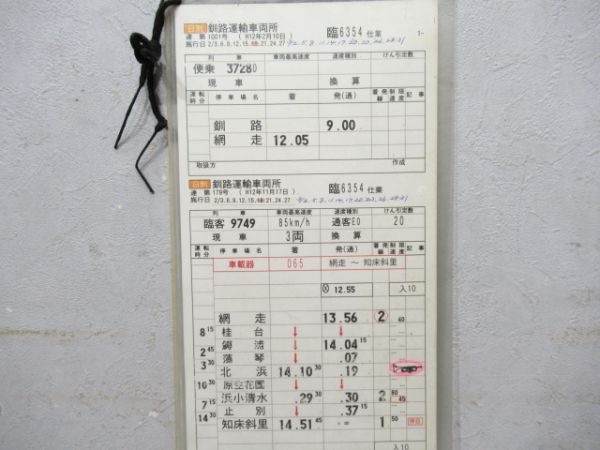 日別 釧路運輸車両所 臨6354仕業
達 第 1001号 (H12年2月10日) 1-
施行日 2/3.6.9.12.15.18.21.24.27
列車 車両最高速度 速度種別 けん引定数
便乗 3728D
現車 換算
運転時分 停車場名 着 発(通) 着発線 制限速度 記事
釧路 9.00
網走 12.05
取扱方 作成
日別 釧路運輸車両所 臨6354仕業
達 第 179号 (H12年11月17日)
施行日 2/3.6.9.12.15.18.21.24.27
列車 車両最高速度 速度種別 けん引定数
臨客 9749 85km/h 通客E0 20
現車 3両 換算
運転時分 停車場名 着 発(通) 着発線 制限速度 記事
車載器 065 網走 ~ 知床斜里
12.55 入10
網走 13.56 2 60
8 15 桂台 ↓ ↓
2 45 鱒浦 ↓ 14.04 15
3 30 藻琴 ↓ .07
北浜 14.10 30 .19
10 30 原生花園 ↓ ↓
7 15 浜小清水 .29 30 .30 2
14 30 止別 ↓ .37 15
知床斜里 14.51 45 1 50
入10